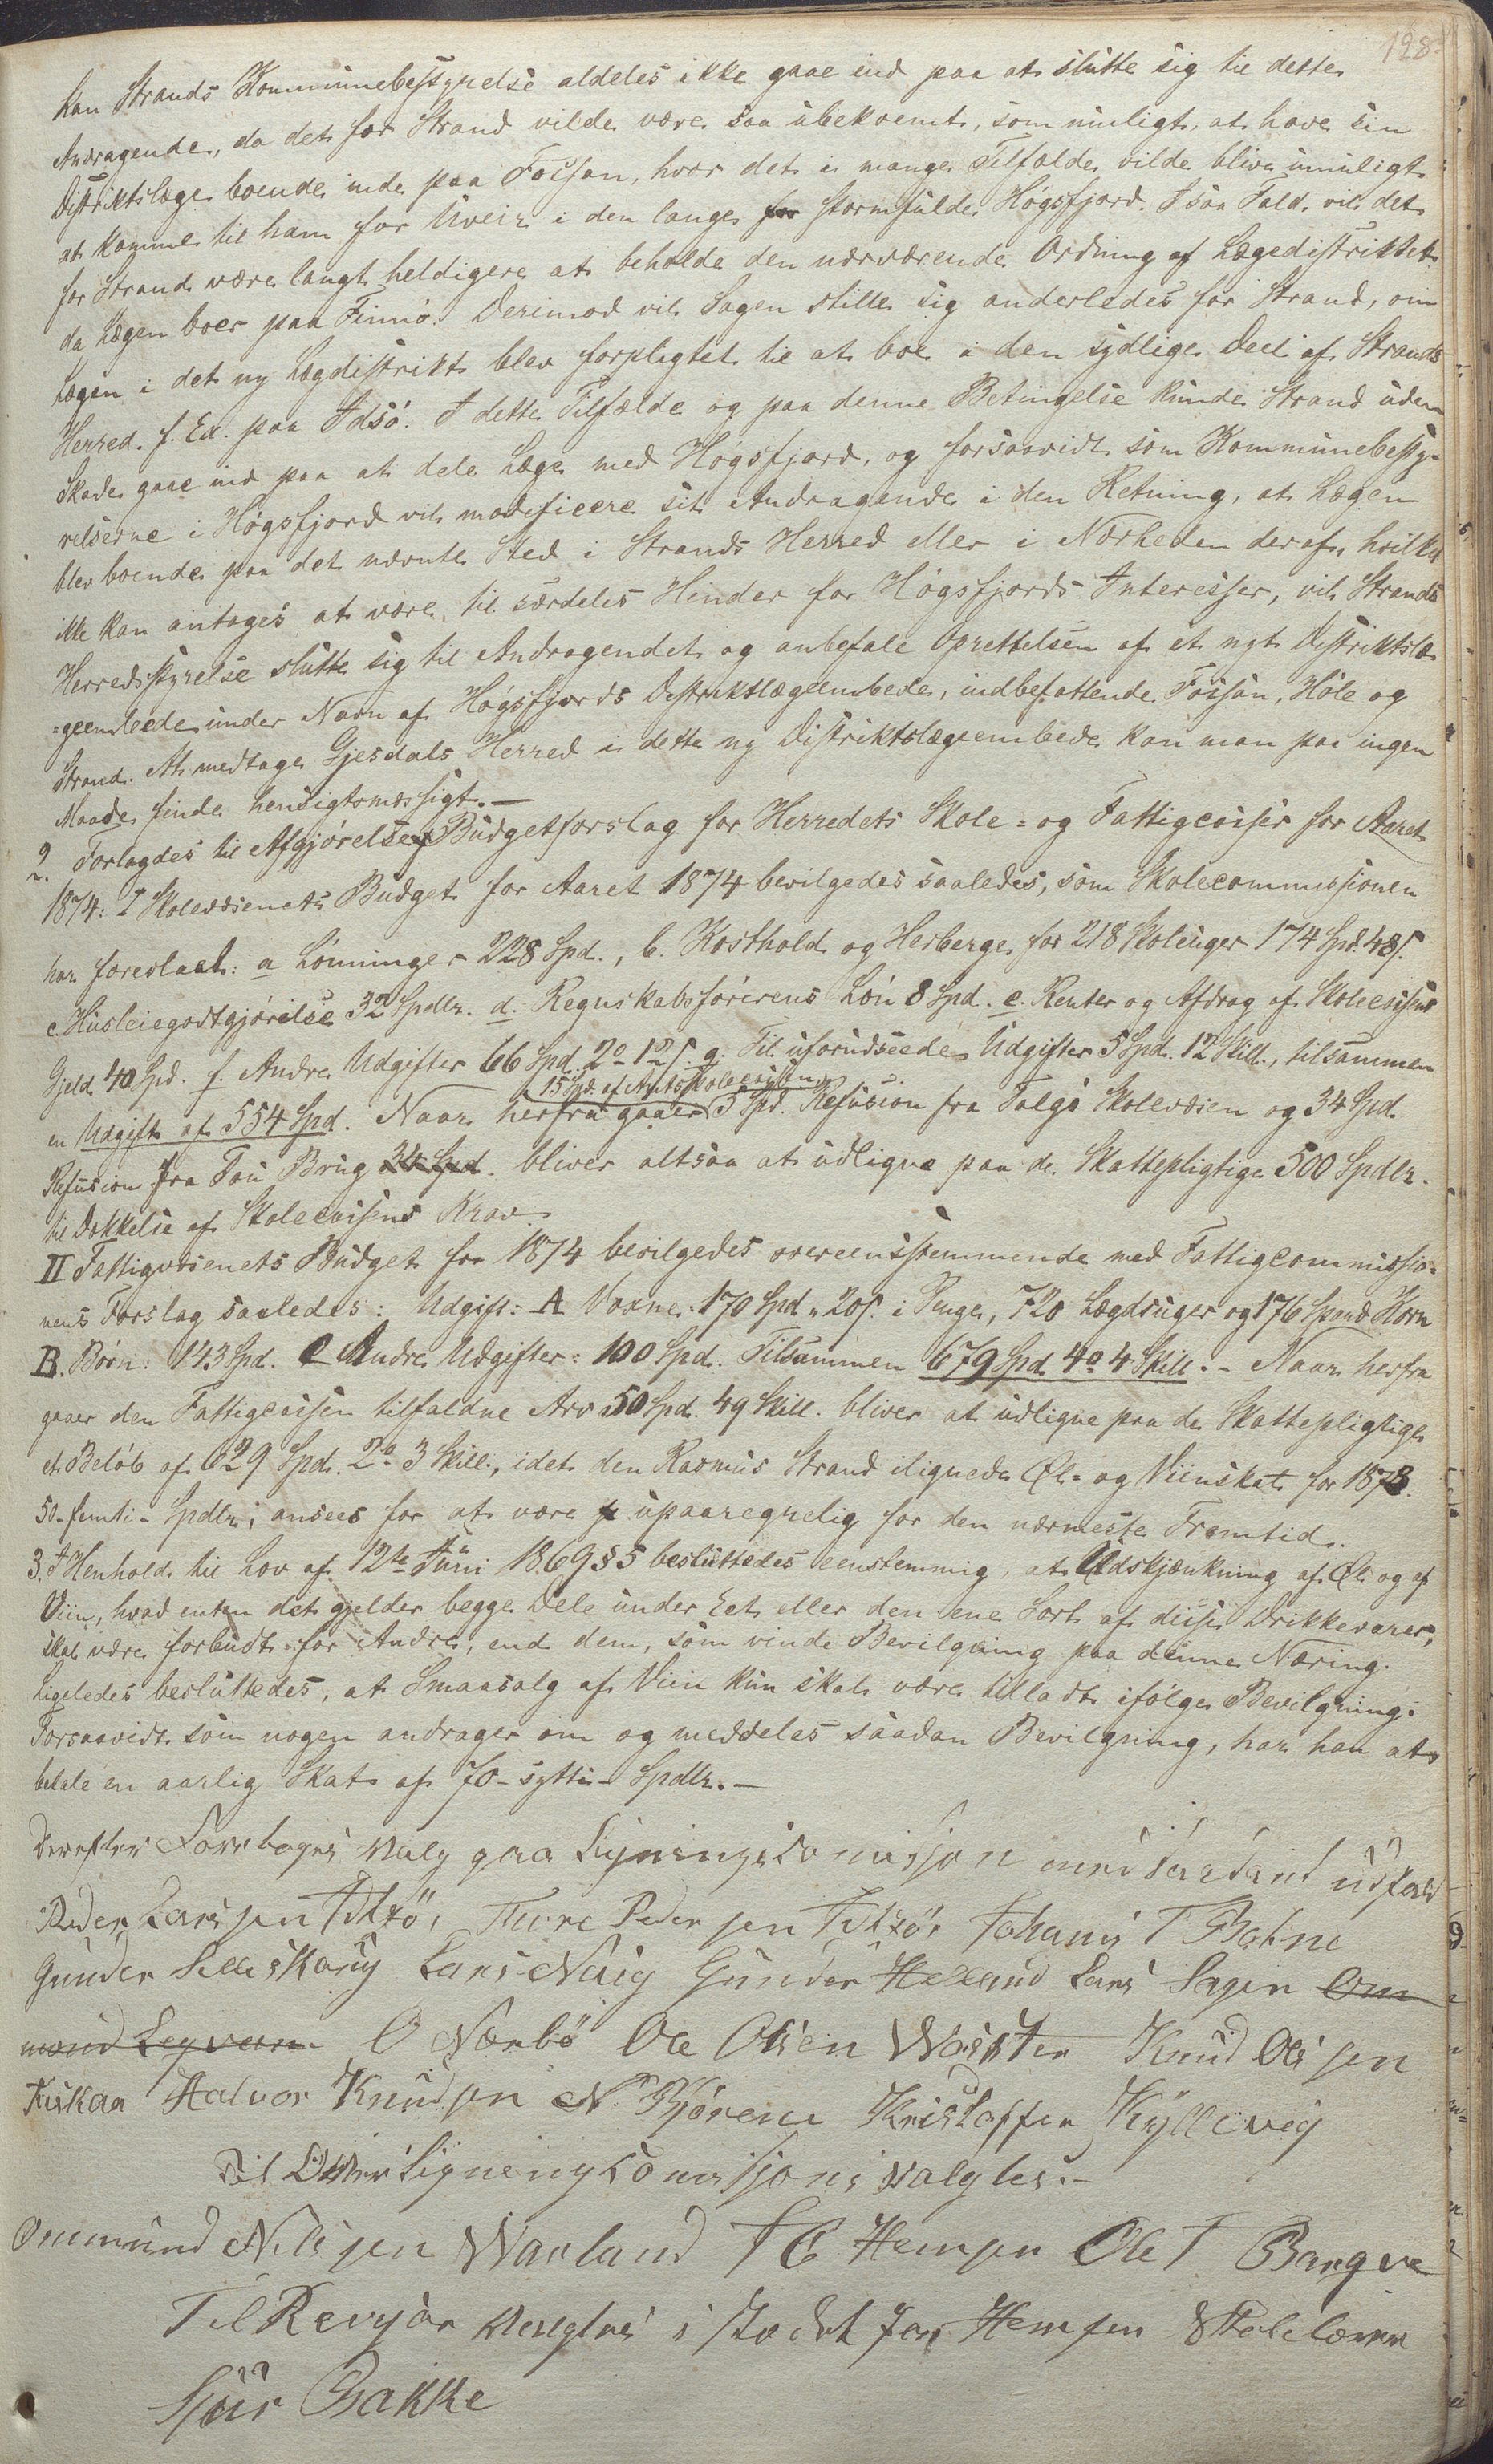 198.
kan Strands Kommunebestyrelse aldeles ikke gaae ind paa at slutte sig til dette
Andragende, da det for Strand vilde være saa ubekvemt, som muligt, at have sin
Distriktslæge boende inde paa Fossan, hvor det i mange Tilfælde vilde blive umuligt
at komme til ham for Uveir i den lange stormfulde Högsfjord. I saa Fald vil det
for Strand være langt heldigere at beholde den nærværende Ordning af Lægedistriktet
da Lægen boer paa Finnö. Derimod vil Sagen stille sig anderledes for Strand, om
Lægen i det ny Lægdistrikt blev forpligtet til at boe i den sydlige Deel af Strands
Herred. f. Ex. paa Idsö. I dette Tilfælde og paa denne Betingelse kunde Strand uden
Skade gaae ind paa at dele Læge med Högsfjord, og forsaavidt som Kommunebesty-
relserne i Högsfjord vil modificere sit Andragende i den Retning, at Lægen
blev boende paa det nævnte Sted i Strands Herred eller i Nærheden deraf, hvilket
ikke kan antages at være til særdeles Hinder for Högsfjords Interesser, vil Strands
Herredsstyrelse slutte sig til Andragendet og anbefale Oprettelsen af et nyt Distriktslæ-
=geembede under Navn af Högsfjords Distriktlægeembede, indbefattende Fossan, Höle og
Strand. At medtage Gjesdals Herred i dette ny Distriktslægeembede kan man paa ingen
Maade finde hensigtsmæssigt.—
2. Forlagdes til Afgjörelse Budgetforslag for Herredets Skole= og Fattigcasser for Aaret
1874: I Skolevæsenets Budget for Aaret 1874 bevilgedes saaledes, som Skolecommissionen
har foreslaaet: a Lönninger 228 Spd., b. Kosthold og Herberge for 218 Skoleuger 174 Spd. 48 s.
c. Husleiegodtgjörelse 32 Spdlr. d. Regnskabsförerens Lön 8 Spd. e. Renter og Afdrag af Skolecassens
Gjeld 40 Spd. f. Andre Udgifter 66 Spd. 2o 12 s. g. Til uforudseede Udgifter 5 Spd. 12 Skill., tilsammen
15 Spd. af Amtsskolecassen
en Udgift af 554 Spd. Naar herfra gaaer 5 Spd. Refusion fra Talgö Skolevæsen og 34 Spd
Refusion fra Tou Brug 34 Spd. bliver altsaa at udligne paa de Skattepligtige 500 Spdlr.
til Dækkelse af Skolecassens Krav.
II Fattigvæsenets Budget for 1874 bevilgedes overeensstemmende med Fattigcommissio-
nens Forslag saaledes: Udgift: A Voxne: 170 Spd „ 20 s. i Penge, 720 Lægdsuger og 176 Spand Korn
B. Börn: 143 Spd. C Andre Udgifter: 100 Spd. Tilsammen 679 Spd 4o 4 Skill.- Naar herfra
gaaer den Fattigcassen tilfaldne Arv 50 Spd. 49 Skill. bliver at udligne paa de Skattepligtige
et Belöb af 629 Spd. 2o 3 Skill., idet den Rasmus Strand ilignede Öl- og Viinskat for 1873.
50-femti- Spdlr; ansees for at være upaaregnelig for den nærmeste Fremtid.
3. I Henhold til Lov af 12te Juni 1869 § 5 besluttedes eenstemmig, at Udskjænkning af Öl og af
Viin, hvad enten det gjelder begge Dele under Eet eller den ene Sort af disse Drikkevarer,
skal være forbudt for Andre, end dem, som vinde Bevilgning paa denne Næring.
Ligeledes besluttedes, at Smaasalg af Viin kun skal være tilladt ifölge Bevilgning.
Forsaavidt som nogen andrager om og meddeles saadan Bevilgning, har han at
betale en aarlig Skat af 70-sytti- Spdlr.—
Derefter Foretoges Valg paa Ligningskomisjon med saadant udfald
Peder Larssen Idsö, Tore Pedersen Idsö, Johans T Botne
Gunder Lars Gunder Helland Lars Sagen Om
mund O Nærbö Ole Olsen Knud Olsen
Fiskaa Halvor Knudsen N. Björene Kristoffer Kyllevig
Til OverLigningskomisjons valgtes.-
Ommund Nilssen Warland T C Hemsen Ole T Barque
Til Revisor valgtes i stedet for Hemsen Skolelærer
Sjur Bakke